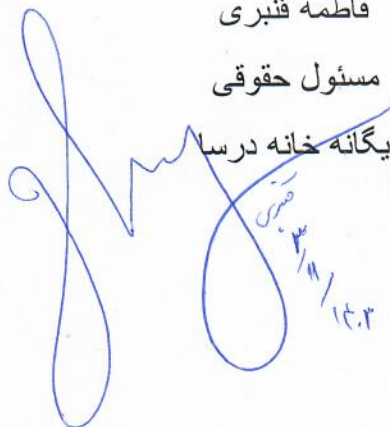 فاطمه قنبری
مسئول حقوقی
یگانه خانه درسا
قنبری
۱۴۰۳/۱۱/۳۰